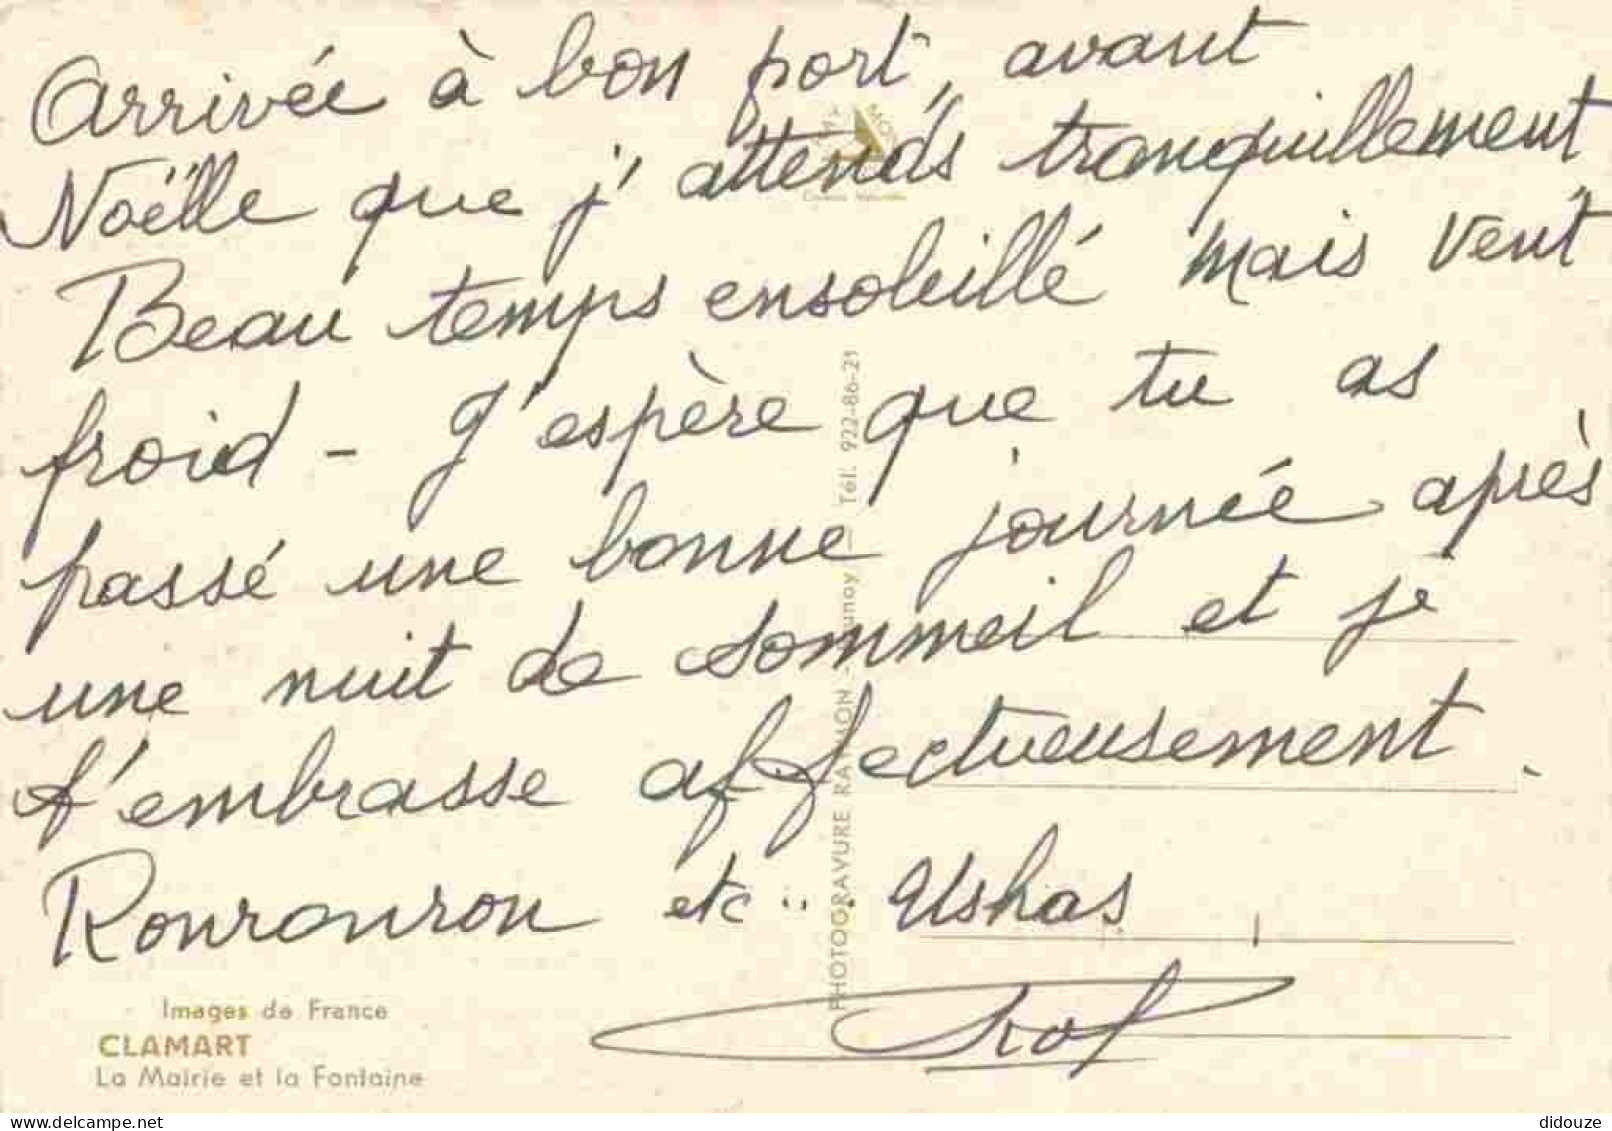 Arrivée à bon port, avant
Noëlle que j'attends tranquillement
Beau temps ensoleillé mais vent
froid - J'espère que tu as
passé une bonne journée après
une nuit de sommeil et je
t'embrasse affectueusement.
Ronronron etc... Ushas
Images de France
CLAMART
La Mairie et la Fontaine
PHOTOGRAVURE RAYMON - Tél. 922-86-21
didouze